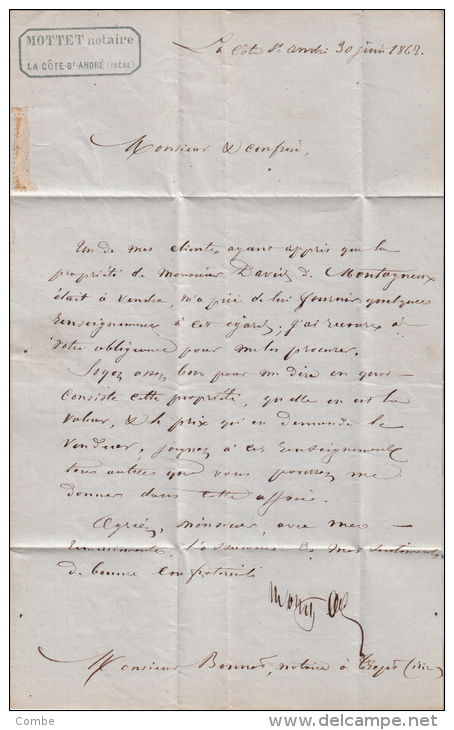 MOTTET notaire
LA CÔTE-St-ANDRÉ (ISÈRE)
La Côte St andré 30 juin 1863.
Monsieur & confrère,
Un de mes clients ayant appris que la
propriété de monsieur David de Montagneux
était à vendre m'a prié de lui fournir quelques
renseignements à cet égard, j'ai recours à
votre obligeance pour me les procurer.
Soyez assez bon pour me dire en quoi
consiste cette propriété, quelle en est la
valeur, & le prix qu'en demande le
vendeur, joignez à ces renseignements
tous autres que vous pourrez me
donner dans cette affaire.
Agréez, monsieur, avec mes
remerciements, l'assurance de mes sentiments
de bonne confraternité
Mottet
Monsieur Bonnet, notaire à
Combe
www.delcampe.net